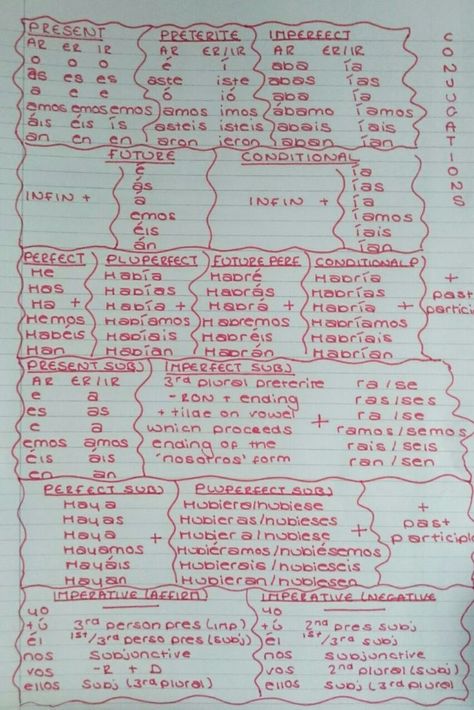 CONJUGATIONS
PRESENT
AR ER IR
o o o
as es es
a e e
amos emos emos
áis éis ís
an en en
PRETERITE
AR ER/IR
é í
aste iste
ó ió
amos imos
asteis isteis
aron ieron
IMPERFECT
AR ER/IR
aba ía
abas ías
aba ía
ábamo íamos
abais íais
aban ían
FUTURE
INFIN +
é
ás
a
emos
éis
án
CONDITIONAL
INFIN +
ía
ías
ía
íamos
íais
ían
PERFECT
He
Has
Ha +
Hemos
Habéis
Han
PLUPERFECT
Había
Habías
Había +
Habíamos
Habíais
Habían
FUTURE PERF
Habré
Habrás
Habrá +
Habremos
Habréis
Habrán
CONDITIONAL P
Habría
Habrías
Habría +
Habríamos
Habríais
Habrían
+
past
partici
PRESENT SUBJ
AR ER/IR
e a
es as
e a
emos amos
éis áis
en an
IMPERFECT SUBJ
3rd plural preterite
-RON + ending
+ tilde on vowel
which proceeds
ending of the
'nosotros' form
+
ra/se
ras/ses
ra/se
ramos/semos
rais/seis
ran/sen
PERFECT SUBJ
Haya
Hayas
Haya +
Hayamos
Hayáis
Hayan
PLUPERFECT SUBJ
Hubiera/hubiese
Hubieras/hubieses
Hubiera/hubiese +
Hubiéramos/hubiésemos
Hubierais/hubieseis
Hubieran/hubiesen
+
past
participle
IMPERATIVE (AFFIRM)
yo
tú 3rd person pres (imp)
él 1st/3rd perso pres (subj)
nos subjunctive
vos -R + D
ellos subj (3rd plural)
IMPERATIVE (NEGATIVE
yo
tú 2nd pres subj
él 1st/3rd subj
nos subjunctive
vos 2nd plural (subj)
ellos subj (3rd plural)